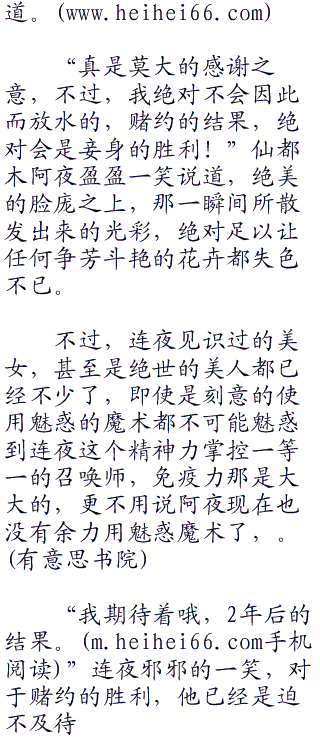 道。(www.heihei66.com)
“真是莫大的感谢之
意，不过，我绝对不会因此
而放水的，赌约的结果，绝
对会是妾身的胜利！”仙都
木阿夜盈盈一笑说道，绝美
的脸庞之上，那一瞬间所散
发出来的光彩，绝对足以让
任何争芳斗艳的花卉都失色
不已。
不过，连夜见识过的美
女，甚至是绝世的美人都已
经不少了，即使是刻意的使
用魅惑的魔术都不可能魅惑
到连夜这个精神力掌控一等
一的召唤师，免疫力那是大
大的，更不用说阿夜现在也
没有余力用魅惑魔术了，。
(有意思书院)
“我期待着哦，2年后的
结果。(m.heihei66.com手机
阅读)”连夜邪邪的一笑，对
于赌约的胜利，他已经是迫
不及待